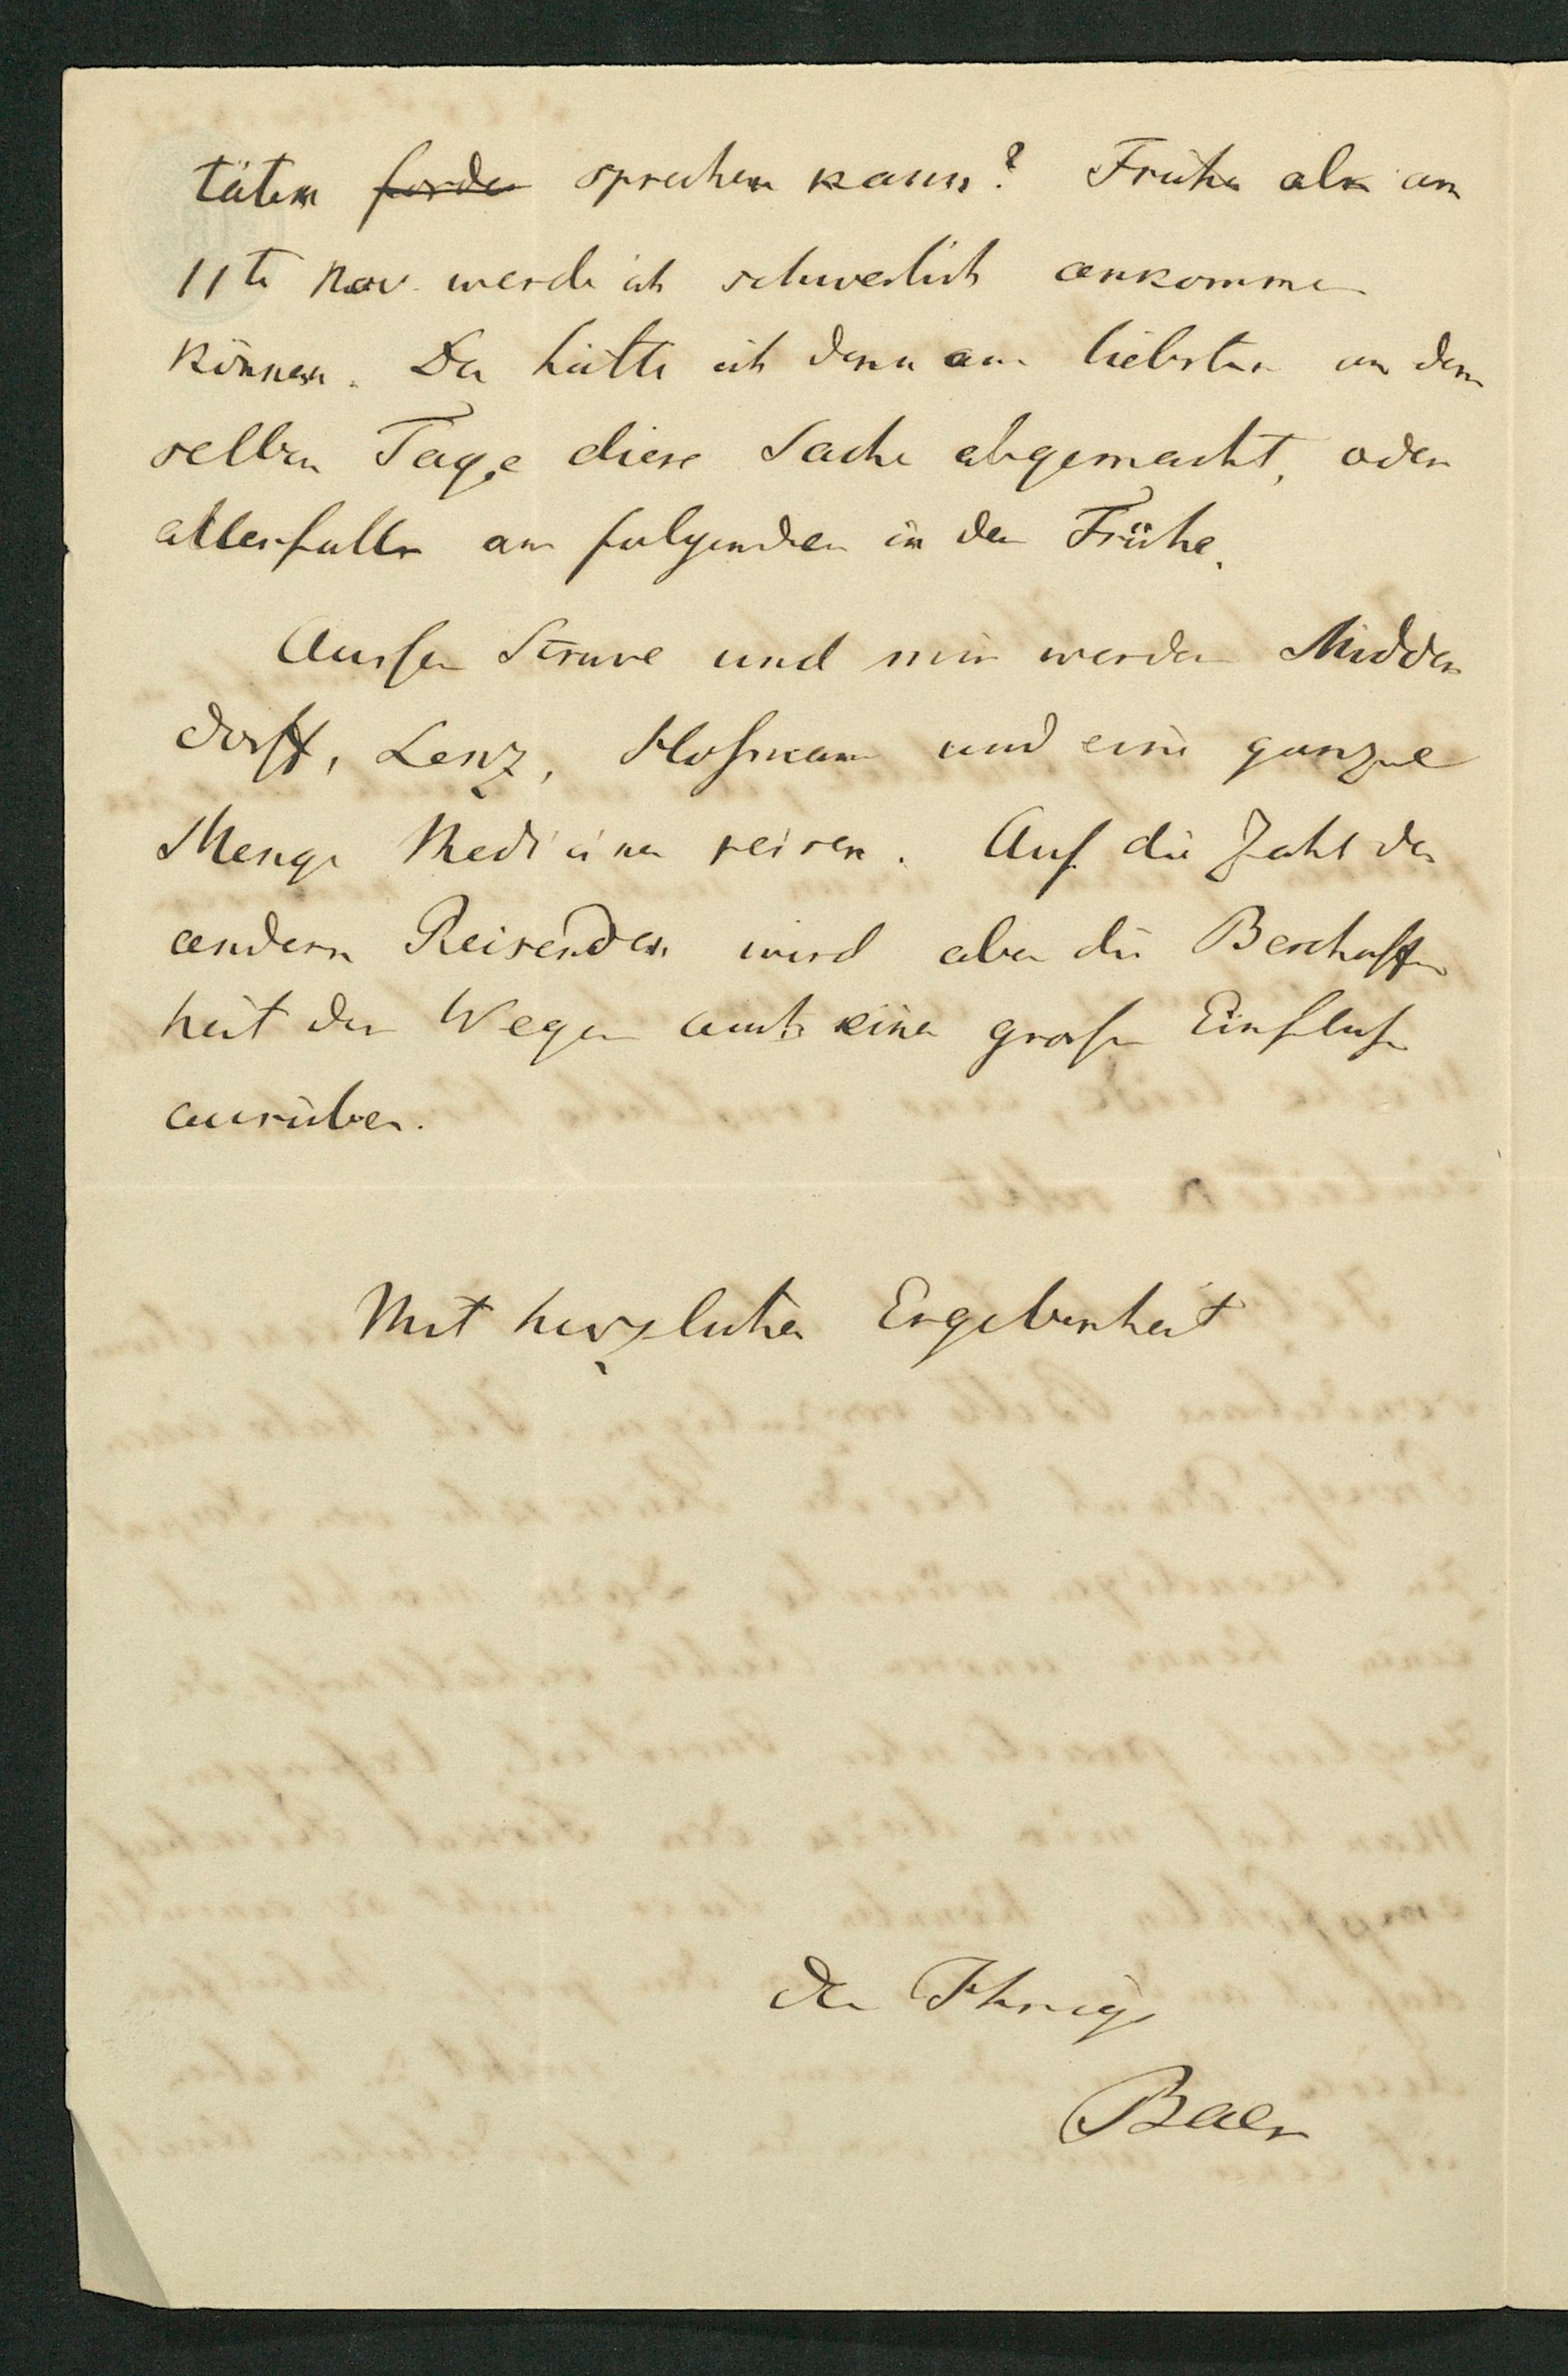 täten forder sprechen kann? Früher als am
11te Nov. werde ich schwerlich ankommen
können. Da hätte ich denn am liebsten an dem
selben Tage diese Sache abgemacht, oder
allenfalls am folgenden in der Frühe.
Ausser Struve und mir werden Midden
dorff, Lenz, Hofmann und eine ganze
Menge Mediciner reisen. Auf die Zahl der
andern Reisenden wird aber die Beschaffen
heit der Wege auch einen grossen Einfluss
ausüben.
Mit herzlicher Ergebenheit
Der Ihrige
Baer